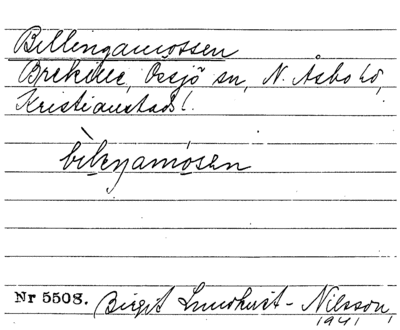 Billingamossen
Brekille, Ossjö sn, N. Åsbo hd,
Kristianstads l.
bìleŋamósen
Nr 5508. Birgit Lundkvist-Nilsson,
1941